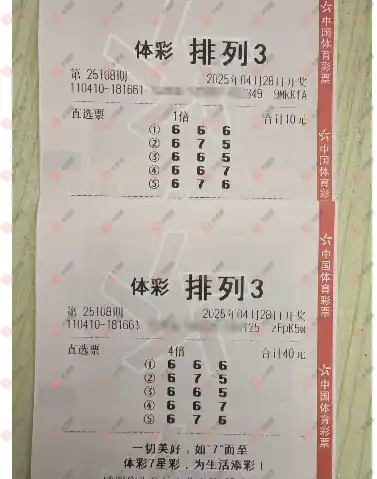 体彩 排列3
第 25108期 2025年04月28日开奖
110410-181661 349 9MkKfA
直选票 1倍 合计10元
① 6 6 6
② 6 7 5
③ 6 6 5
④ 6 6 7
⑤ 6 7 6
中国体育彩票
中国体育彩票
体彩 排列3
第 25108期 2025年04月28日开奖
110410-181661 f25 zFpK5w
直选票 4倍 合计40元
① 6 6 6
② 6 7 5
③ 6 6 5
④ 6 6 7
⑤ 6 7 6
一切美好，如"7"而至
体彩7星彩，为生活添彩！
中国体育彩票
中国体育彩票